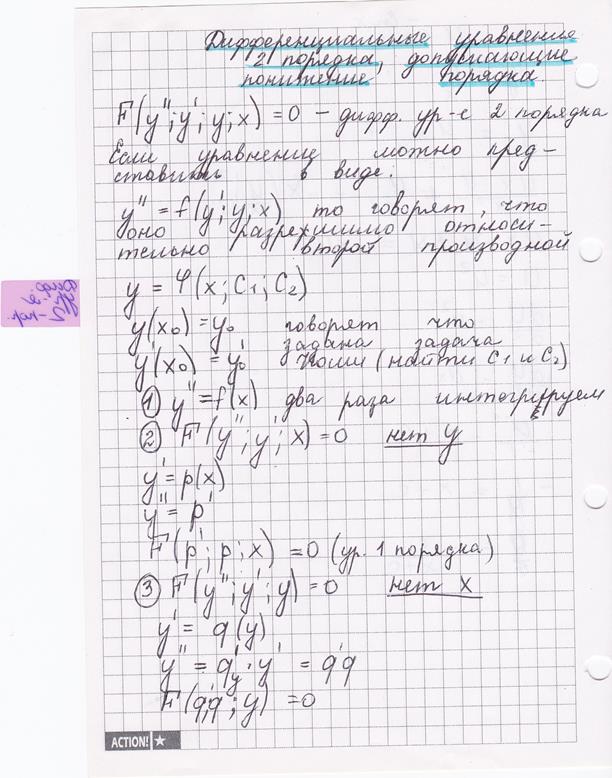 Дифференциальные уравнения
2 порядка, допускающие
понижение порядка
F(y'';y';y;x)=0 – дифф. ур-е 2 порядка
Если уравнение можно пред-
ставить в виде.
y''=f(y';y;x) то говорят, что
оно разрешимо относи-
тельно второй производной
y = φ(x;C1;C2)
y(x0)=y0 говорят что
задана задача
y'(x0)=y'0 Коши (найти C1 и C2)
① y''=f(x) два раза интегрируем
② F(y'';y';x)=0 нет y
y'=p(x)
y''=p'
F(p';p;x)=0 (ур. 1 порядка)
③ F(y'';y';y)=0 нет x
y'= q(y)
y''= q'y·y' = q'q
F(q'q;y)=0
ACTION!
диф.
ур-я
2-пор.